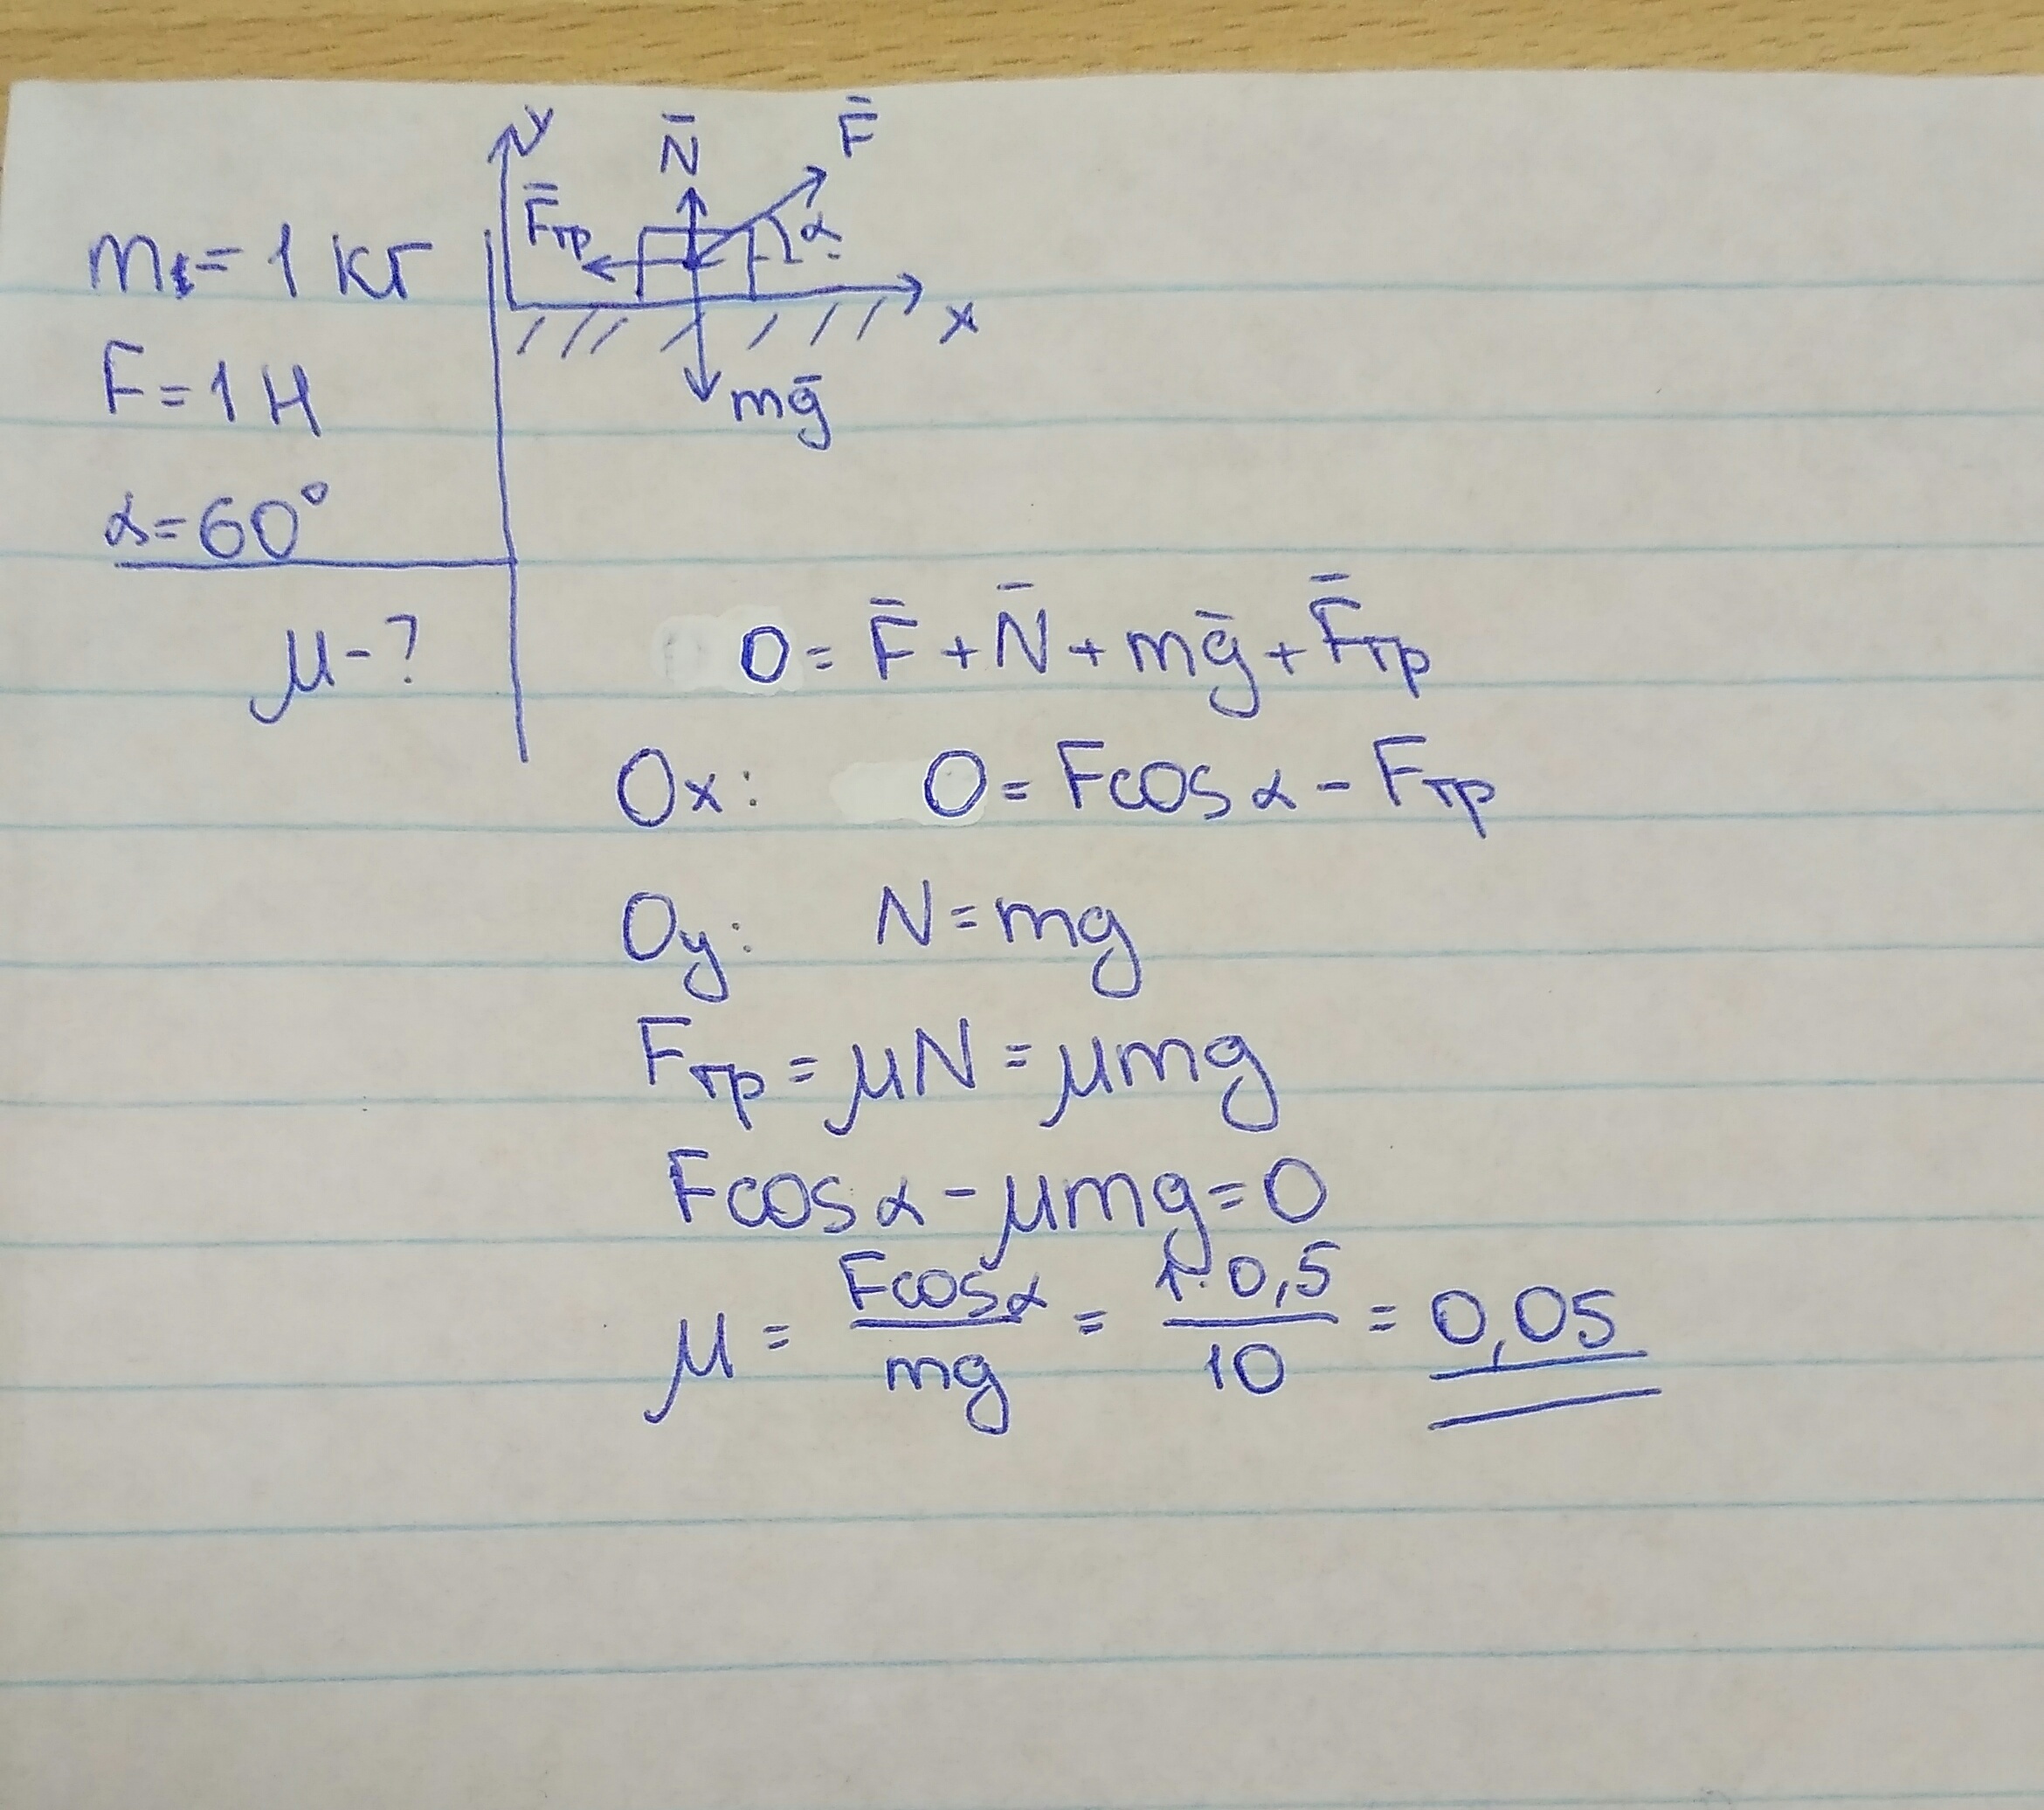 m₁ = 1 кг
F = 1 Н
α = 60°
μ - ?
y
N̄
F̄
F̄тр
α
x
mḡ
0 = F̄ + N̄ + mḡ + F̄тр
Ox: 0 = Fcos α - Fтр
Oy: N = mg
Fтр = μN = μmg
Fcos α - μmg = 0
μ = Fcosα / mg = 1·0,5 / 10 = 0,05